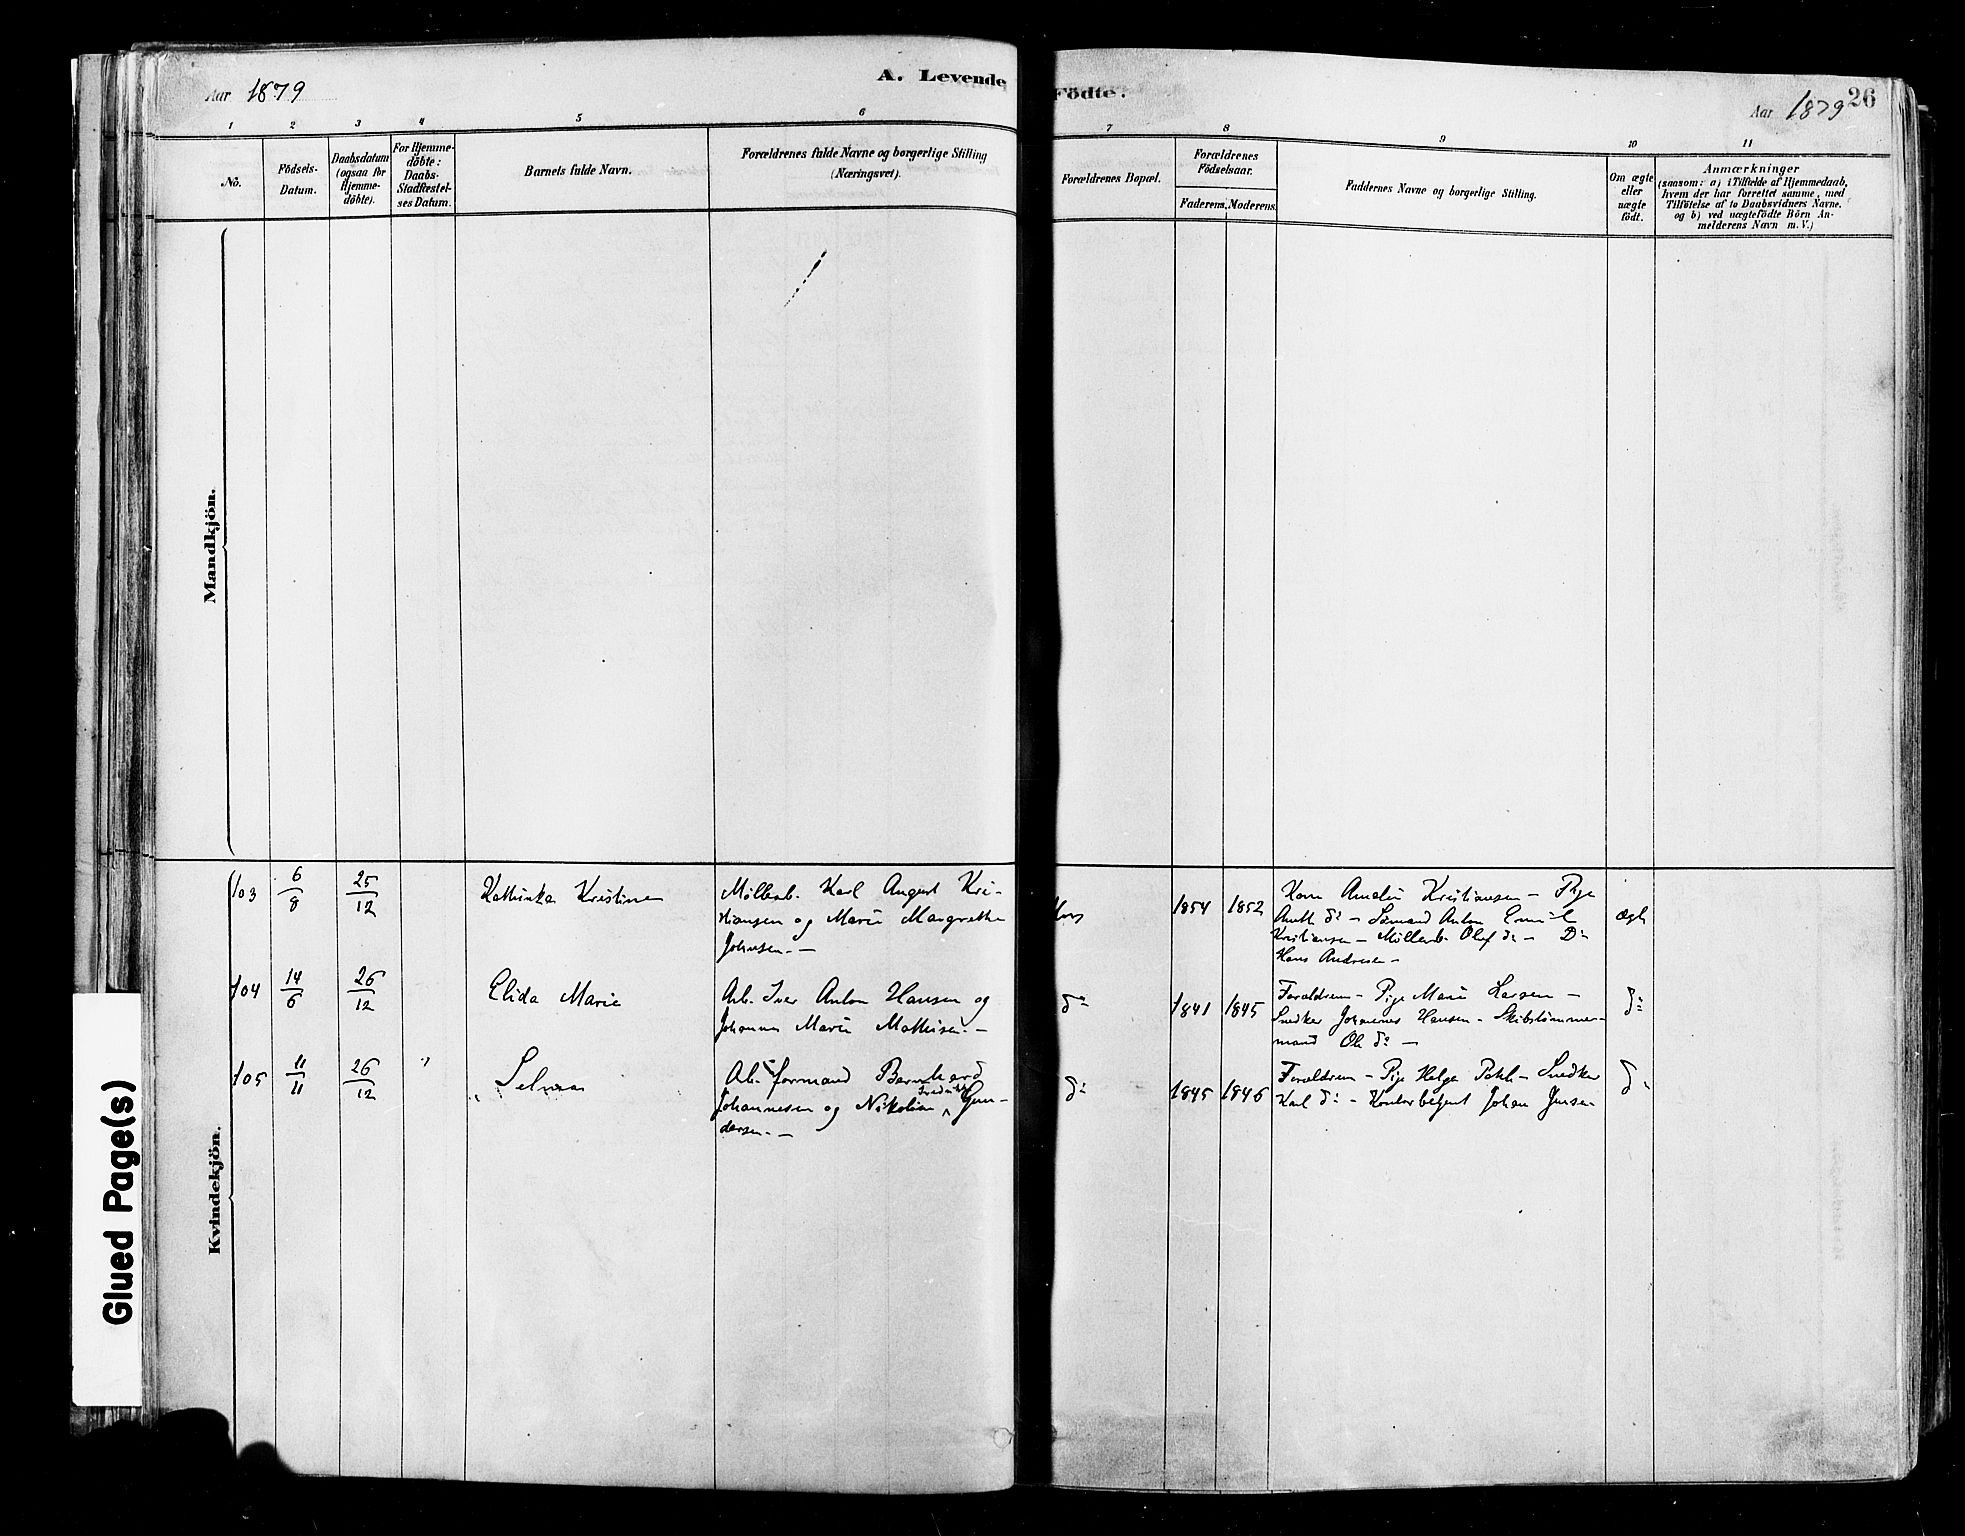 Aar 1879
A. Levende
Födte.
Aar 1879
26
1 2 3 4 5 6
7 8 9 10 11
No.
Födsels-
Datum.
Daabsdatum
(ogsaa for
Hjemme-
döbte).
For Hjemme-
döbte:
Daabs-
Stadfæstel-
ses Datum.
Barnets fulde Navn.
Forældrenes fulde Navne og borgerlige Stilling
(Næringsvei).
Forældrenes Bopæl.
Forældrenes
Födselsaar.
Faderens. Moderens.
Faddernes Navne og borgerlige Stilling.
Om ægte
eller
uægte
födt.
Anmærkninger
(saasom: a) i Tilfælde af Hjemmedaab,
hvem der har forrettet samme, med
Tilföielse af to Daabsvidners Navne,
og b) ved uægtefödte Börn An-
melderens Navn m. V.)
Mandkjön.
Kvindekjön.
103
6/8
25/12
Kathinka Kristine
Møllearb. Karl August Kri-
stiansen og Marie Margrethe
Johnsen.—
1854 1852
Kone Amalie Kristiansen — Pige
Anth do — Sømand Anton Emil
Kristiansen — Møllearb. Olaf do — Do
Hans Andresen —
Ægte
104
14/6
26/12
Elida Marie
Arb. Iver Anton Hansen og
Johanne Marie Mathisen.—
do
1841 1845
Forældrene — Pige Marie Larsen —
Snedker Johannes Hansen — Skibstømmer-
mand Ole do —
do
105
11/11
26/12
"
Selma
Arb. formand Bernhard
Johannesen og Nikoline Gun-
dersen.—
do
1845 1846
Forældrene — Pige Helga — Snedker
Karl do — Kontorbetjent Johan Jensen
do
Glued Page(s)